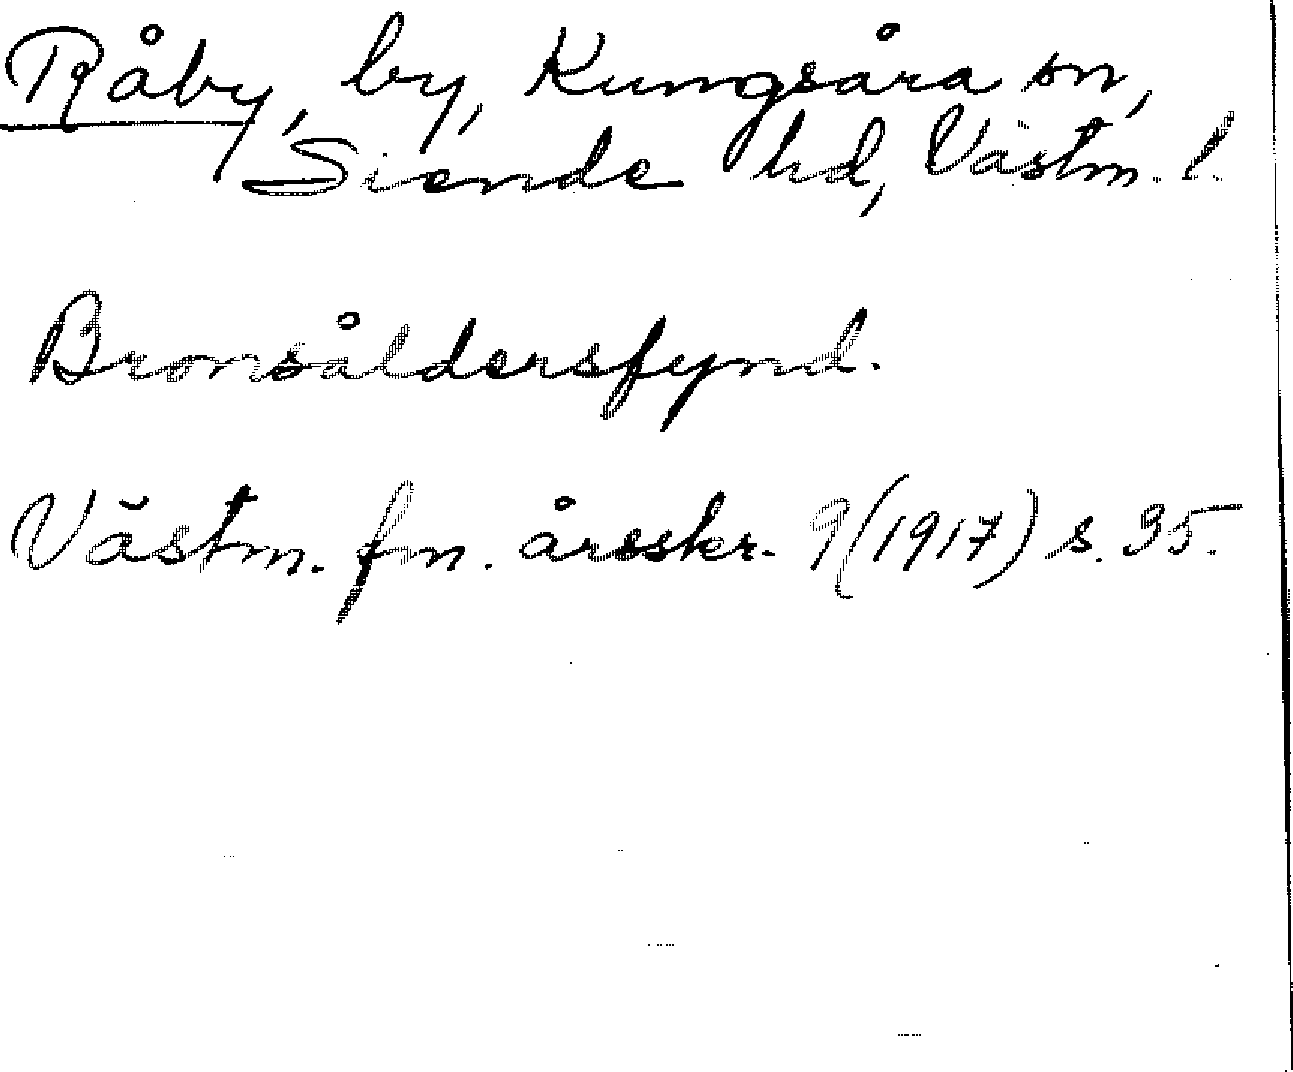 Råby, by, Kungsåra sn,
Siende hd, Västm. l.
Bronsåldersfynd.
Västm. fm. årsskr. 9 (1917) s. 95.